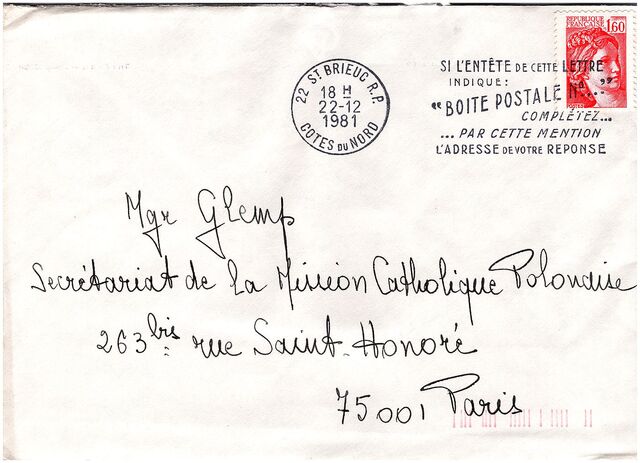 REPUBLIQUE FRANÇAISE 1,60
22 ST BRIEUC R.P.
18 H
22-12
1981
COTES DU NORD
SI L'ENTÊTE DE CETTE LETTRE
INDIQUE:
“BOITE POSTALE N° ...”
COMPLÉTEZ...
...PAR CETTE MENTION
L'ADRESSE DE VOTRE REPONSE
Mgr Glemp
Secrétariat de la Mission Catholique Polonaise
263 bis rue Saint-Honoré
75001 Paris